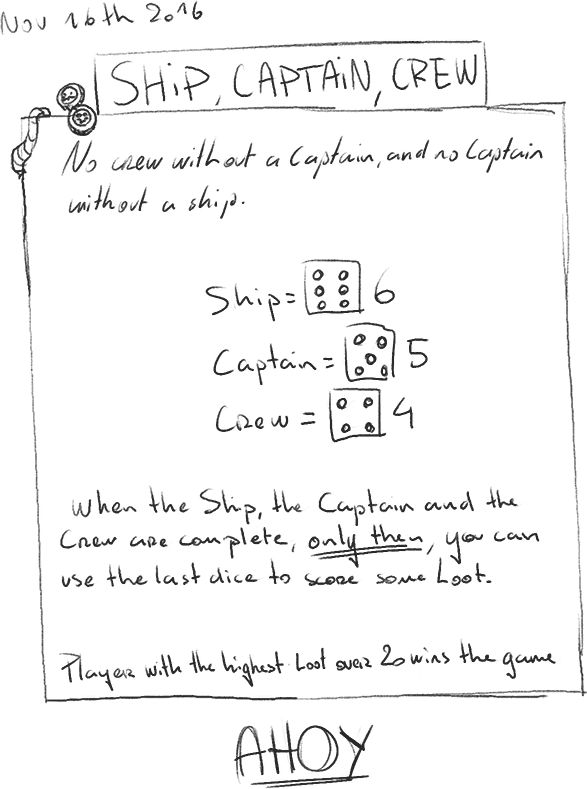 Nov 16th 2016
SHiP, CAPTAiN, CREW
No crew without a Captain, and no Captain
without a ship.
Ship = 6
Captain = 5
Crew = 4
When the Ship, the Captain and the
Crew are complete, only then, you can
use the last dice to score some Loot.
Player with the highest Loot over 20 wins the game
AHOY